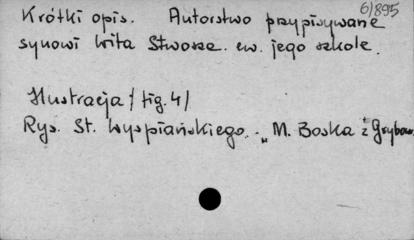 6/895
Krótki opis. Autorstwo przypisywane
synowi Wita Stwosza ew. jego szkole.
Ilustracja / fig. 4 /
Rys. St. Wyspiańskiego. "M. Boska z